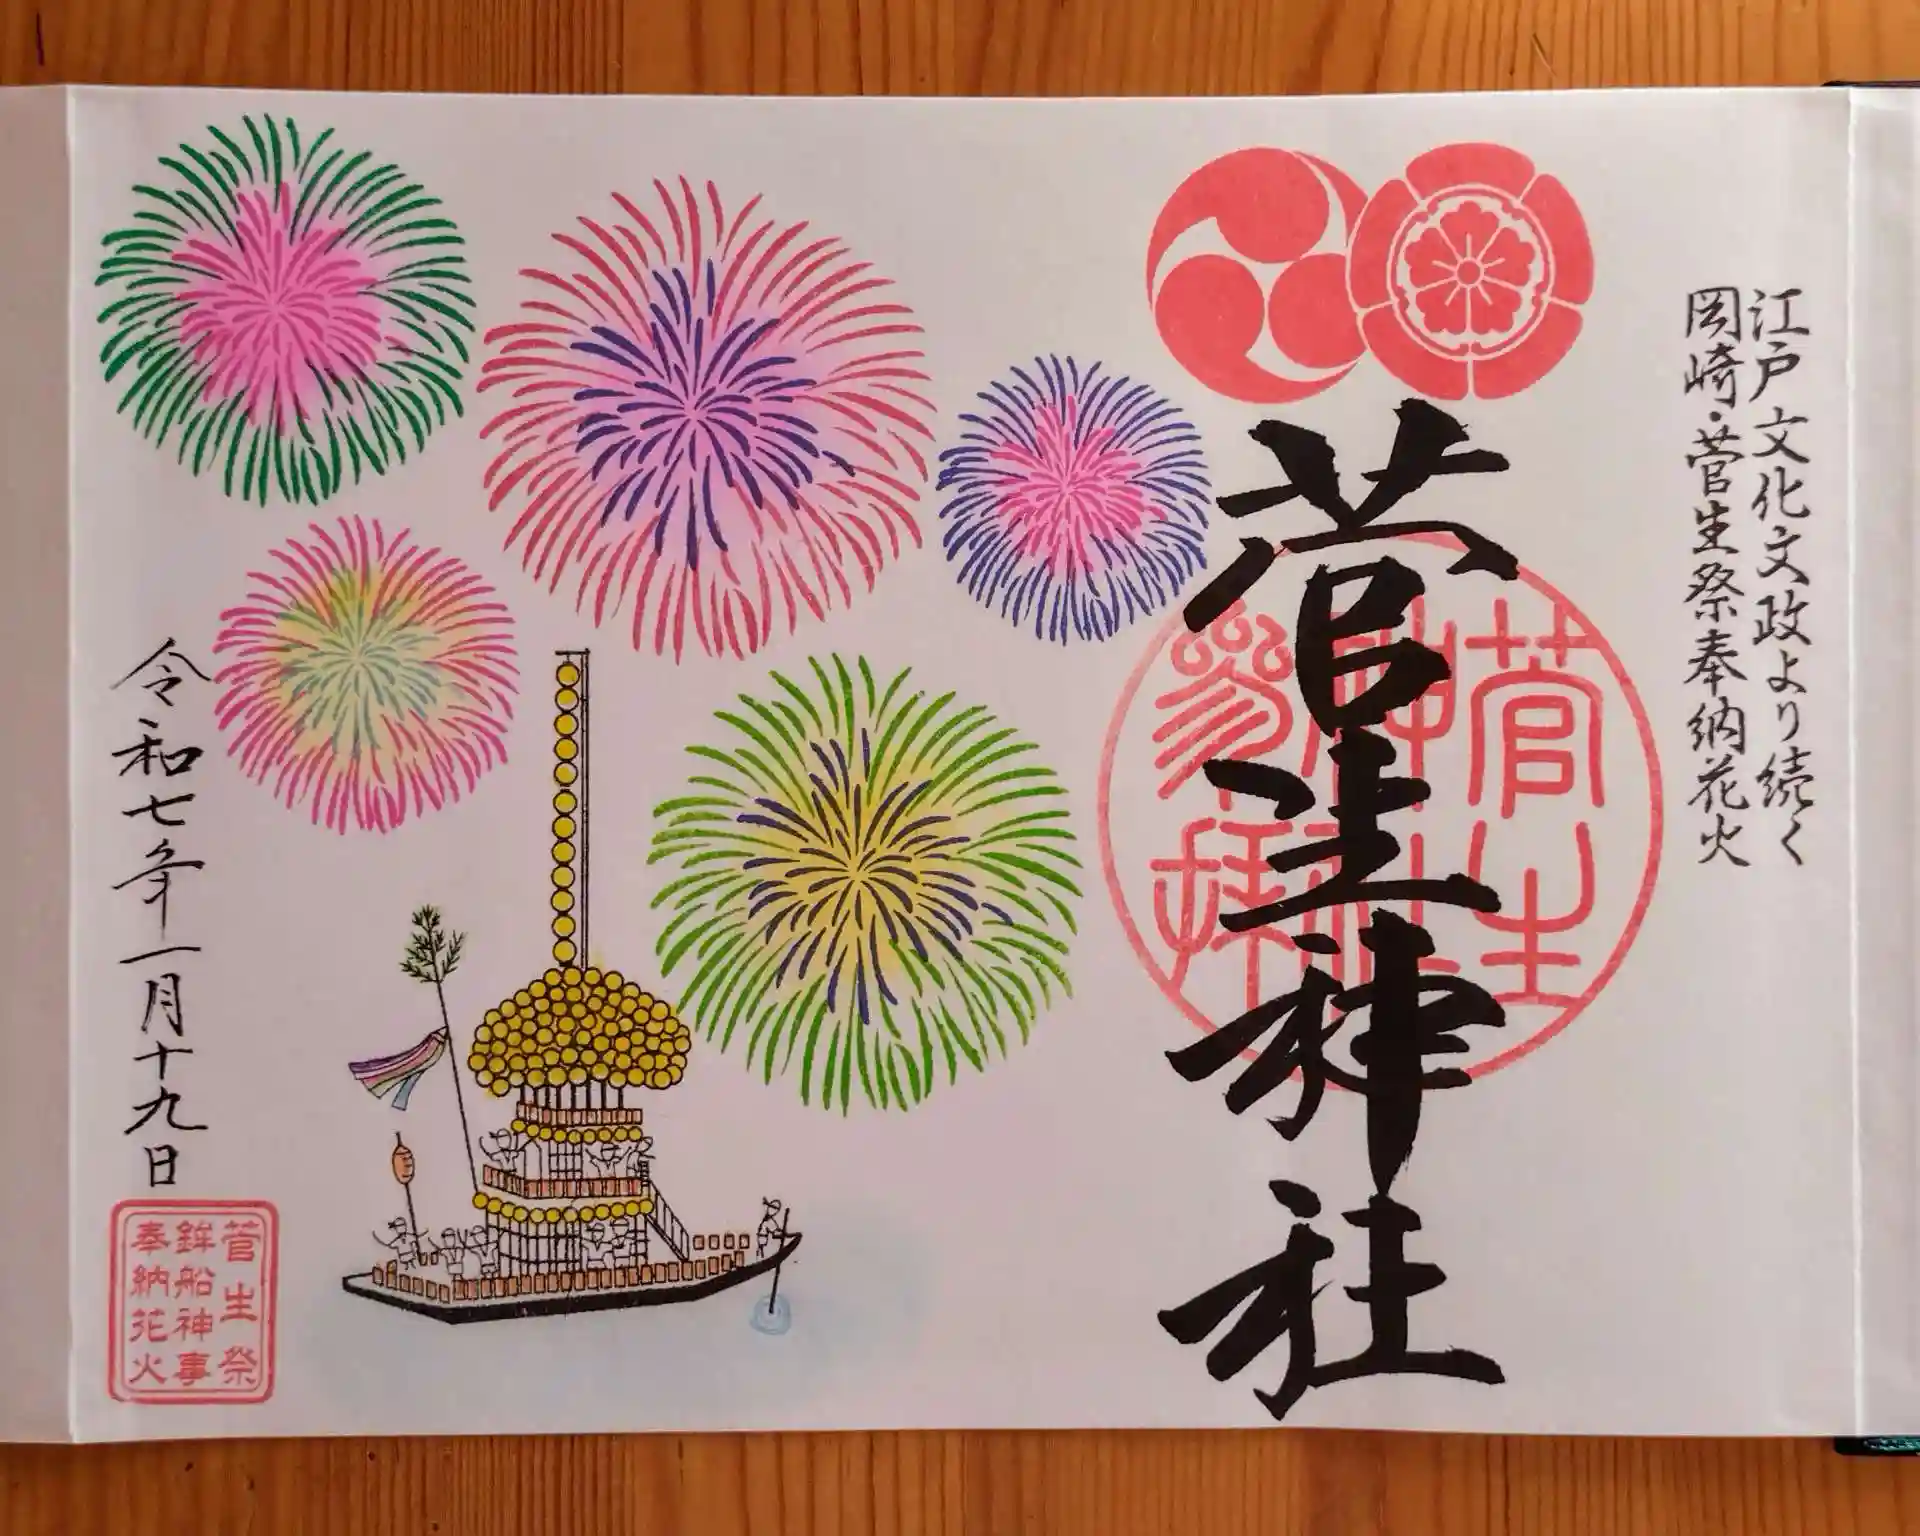 江戸文化文政より続く
岡崎・菅生祭奉納花火
菅生神社
菅生
神社
参拝
令和七年一月十九日
菅生祭
鉾船神事
奉納花火